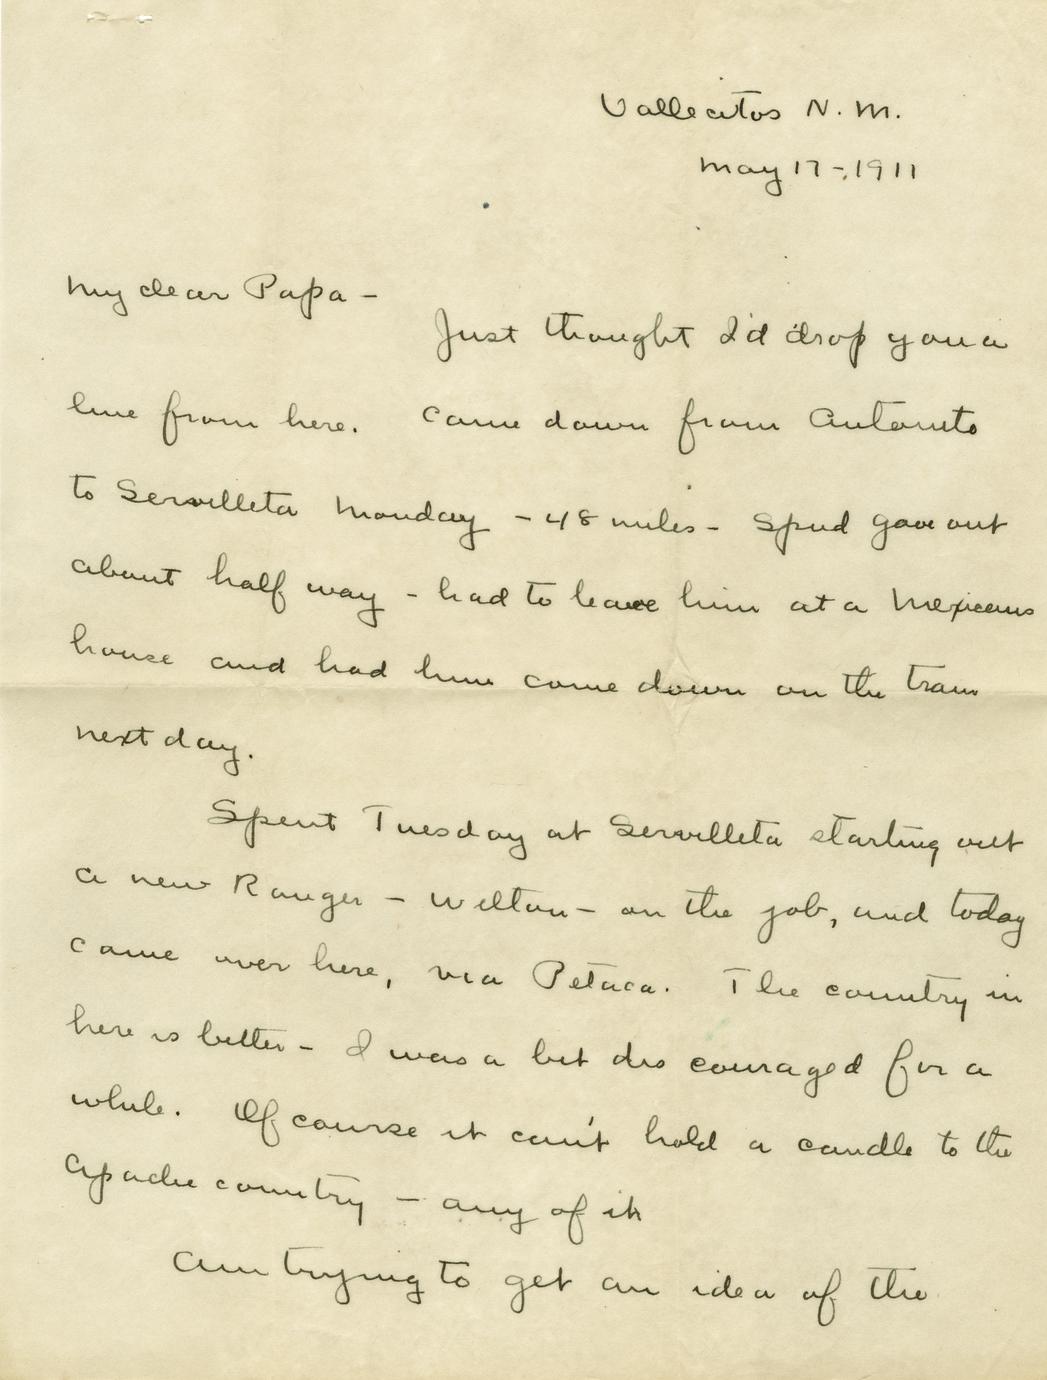 Vallecitos N. M.
May 17-, 1911
My dear Papa -
Just thought I'd drop you a
line from here. Came down from Antonito
to Servilleta Monday - 48 miles - Spud gave out
about half way - had to leave him at a Mexicans
house and had him come down on the train
next day.
Spent Tuesday at Servilleta starting out
a new Ranger - Wilton - on the job, and today
came over here, via Petaca. The country in
here is better - I was a bit discouraged for a
while. Of course it can't hold a candle to the
Apache country - any of it
Am trying to get an idea of the